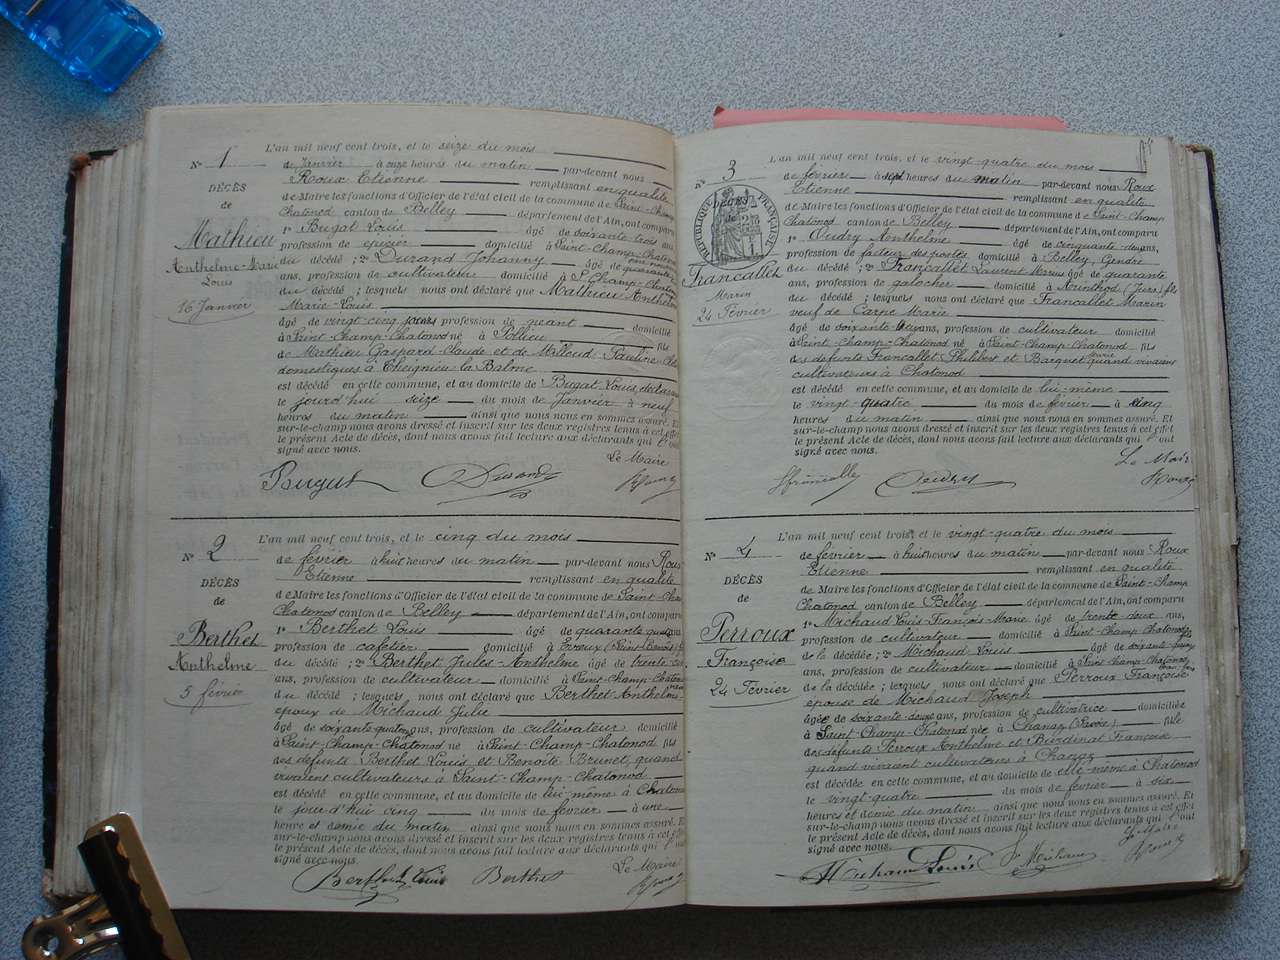 N° 1
DÉCÈS
de
Mathieu
Anthelme-Marie
Louis
16 Janvier
L'an mil neuf cent trois, et le seize du mois
de Janvier à onze heures du matin par-devant nous
Roux Etienne remplissant en qualité
de Maire les fonctions d'Officier de l'état civil de la commune de Saint-Champ
Chatonod canton de Belley département de l'Ain, ont comparu
1° Bugat Louis âgé de soixante trois ans,
profession de épicier domicilié à Saint-Champ-Chatonod
du décédé ; 2° Durand Johanny âgé de quarante
ans, profession de cultivateur domicilié à St Champ-Chatonod
du décédé ; lesquels nous ont déclaré que Mathieu Anthelme
Marie-Louis
âgé de vingt-cinq jours profession de néant domicilié
à Saint-Champ-Chatonod né à Pollieu fils
de Mathieu Gaspard-Claude et de Milloud Pauline
domestiques à Cheignieu la Balme
est décédé en cette commune, et au domicile de Bugat Louis, déclarant
le jourd'hui seize du mois de Janvier à neuf
heures du matin ainsi que nous nous en sommes assuré. Et
sur-le-champ nous avons dressé et inscrit sur les deux registres tenus à cet effet
le présent Acte de décès, dont nous avons fait lecture aux déclarants qui l'ont
signé avec nous.
Le Maire
Bugat Durand Roux
N° 2
DÉCÈS
de
Berthet
Anthelme
5 février
L'an mil neuf cent trois, et le cinq du mois
de février à huit heures du matin par-devant nous Roux
Etienne remplissant en qualité
de Maire les fonctions d'Officier de l'état civil de la commune de Saint-Champ
Chatonod canton de Belley département de l'Ain, ont comparu
1° Berthet Louis âgé de quarante ans,
profession de cafetier domicilié à Evreux
du décédé ; 2° Berthet Jules-Anthelme âgé de trente
ans, profession de cultivateur domicilié à Saint-Champ-Chatonod
du décédé ; lesquels nous ont déclaré que Berthet Anthelme
époux de Michaud Julie
âgé de soixante-quatorze ans, profession de cultivateur domicilié
à Saint-Champ-Chatonod né à Saint-Champ-Chatonod fils
des défunts Berthet Louis et Benoite Brunet, quand
vivaient cultivateurs à Saint-Champ-Chatonod
est décédé en cette commune, et au domicile de lui-même à Chatonod
le jour d'hui cinq du mois de février à une
heure et demie du matin ainsi que nous nous en sommes assuré. Et
sur-le-champ nous avons dressé et inscrit sur les deux registres tenus à cet effet
le présent Acte de décès, dont nous avons fait lecture aux déclarants qui l'ont
signé avec nous.
Le Maire
Berthet Louis Berthet Roux
N° 3
DÉCÈS
de
RÉPUBLIQUE FRANÇAISE
Francallet
Marin
24 Février
L'an mil neuf cent trois, et le vingt-quatre du mois
de février à sept heures du matin par-devant nous Roux
Etienne remplissant en qualité
de Maire les fonctions d'Officier de l'état civil de la commune de Saint-Champ
Chatonod canton de Belley département de l'Ain, ont comparu
1° Oudry Anthelme âgé de cinquante ans,
profession de facteur des postes domicilié à Belley, Gendre
du décédé ; 2° Francallet Laurent âgé de quarante
ans, profession de galocher domicilié à Arinthod (Jura) fils
du décédé ; lesquels nous ont déclaré que Francallet Marin
veuf de Carpe Marie
âgé de soixante ans, profession de cultivateur domicilié
à Saint-Champ-Chatonod né à Saint-Champ-Chatonod fils
des défunts Francallet Philibert et Barquet quand vivaient
cultivateurs à Chatonod
est décédé en cette commune, et au domicile de lui-même
le vingt-quatre du mois de février à cinq
heures du matin ainsi que nous nous en sommes assuré. Et
sur-le-champ nous avons dressé et inscrit sur les deux registres tenus à cet effet
le présent Acte de décès, dont nous avons fait lecture aux déclarants qui l'ont
signé avec nous.
Le Maire
Oudry Roux
N° 4
DÉCÈS
de
Perroux
Françoise
24 Février
L'an mil neuf cent trois, et le vingt-quatre du mois
de février à huit heures du matin par-devant nous Roux
Etienne remplissant en qualité
de Maire les fonctions d'Officier de l'état civil de la commune de Saint-Champ
Chatonod canton de Belley département de l'Ain, ont comparu
1° Michaud Louis François-Marie âgé de trente-deux ans,
profession de cultivateur domicilié à Saint-Champ-Chatonod fils
de la décédée ; 2° Michaud Louis âgé de soixante
ans, profession de cultivateur domicilié à Saint-Champ-Chatonod
de la décédée ; lesquels nous ont déclaré que Perroux Françoise
épouse de Michaud Joseph
âgée de soixante-deux ans, profession de cultivatrice domiciliée
à Saint-Champ-Chatonod née à Chanaz (Savoie) fille
des défunts Perroux Anthelme et Burdinat Françoise
quand vivaient cultivateurs à Chanaz
est décédée en cette commune, et au domicile de elle-même à Chatonod
le vingt-quatre du mois de février à six
heures et demie du matin ainsi que nous nous en sommes assuré. Et
sur-le-champ nous avons dressé et inscrit sur les deux registres tenus à cet effet
le présent Acte de décès, dont nous avons fait lecture aux déclarants qui l'ont
signé avec nous.
Le Maire
Michaud Louis Michaud Roux